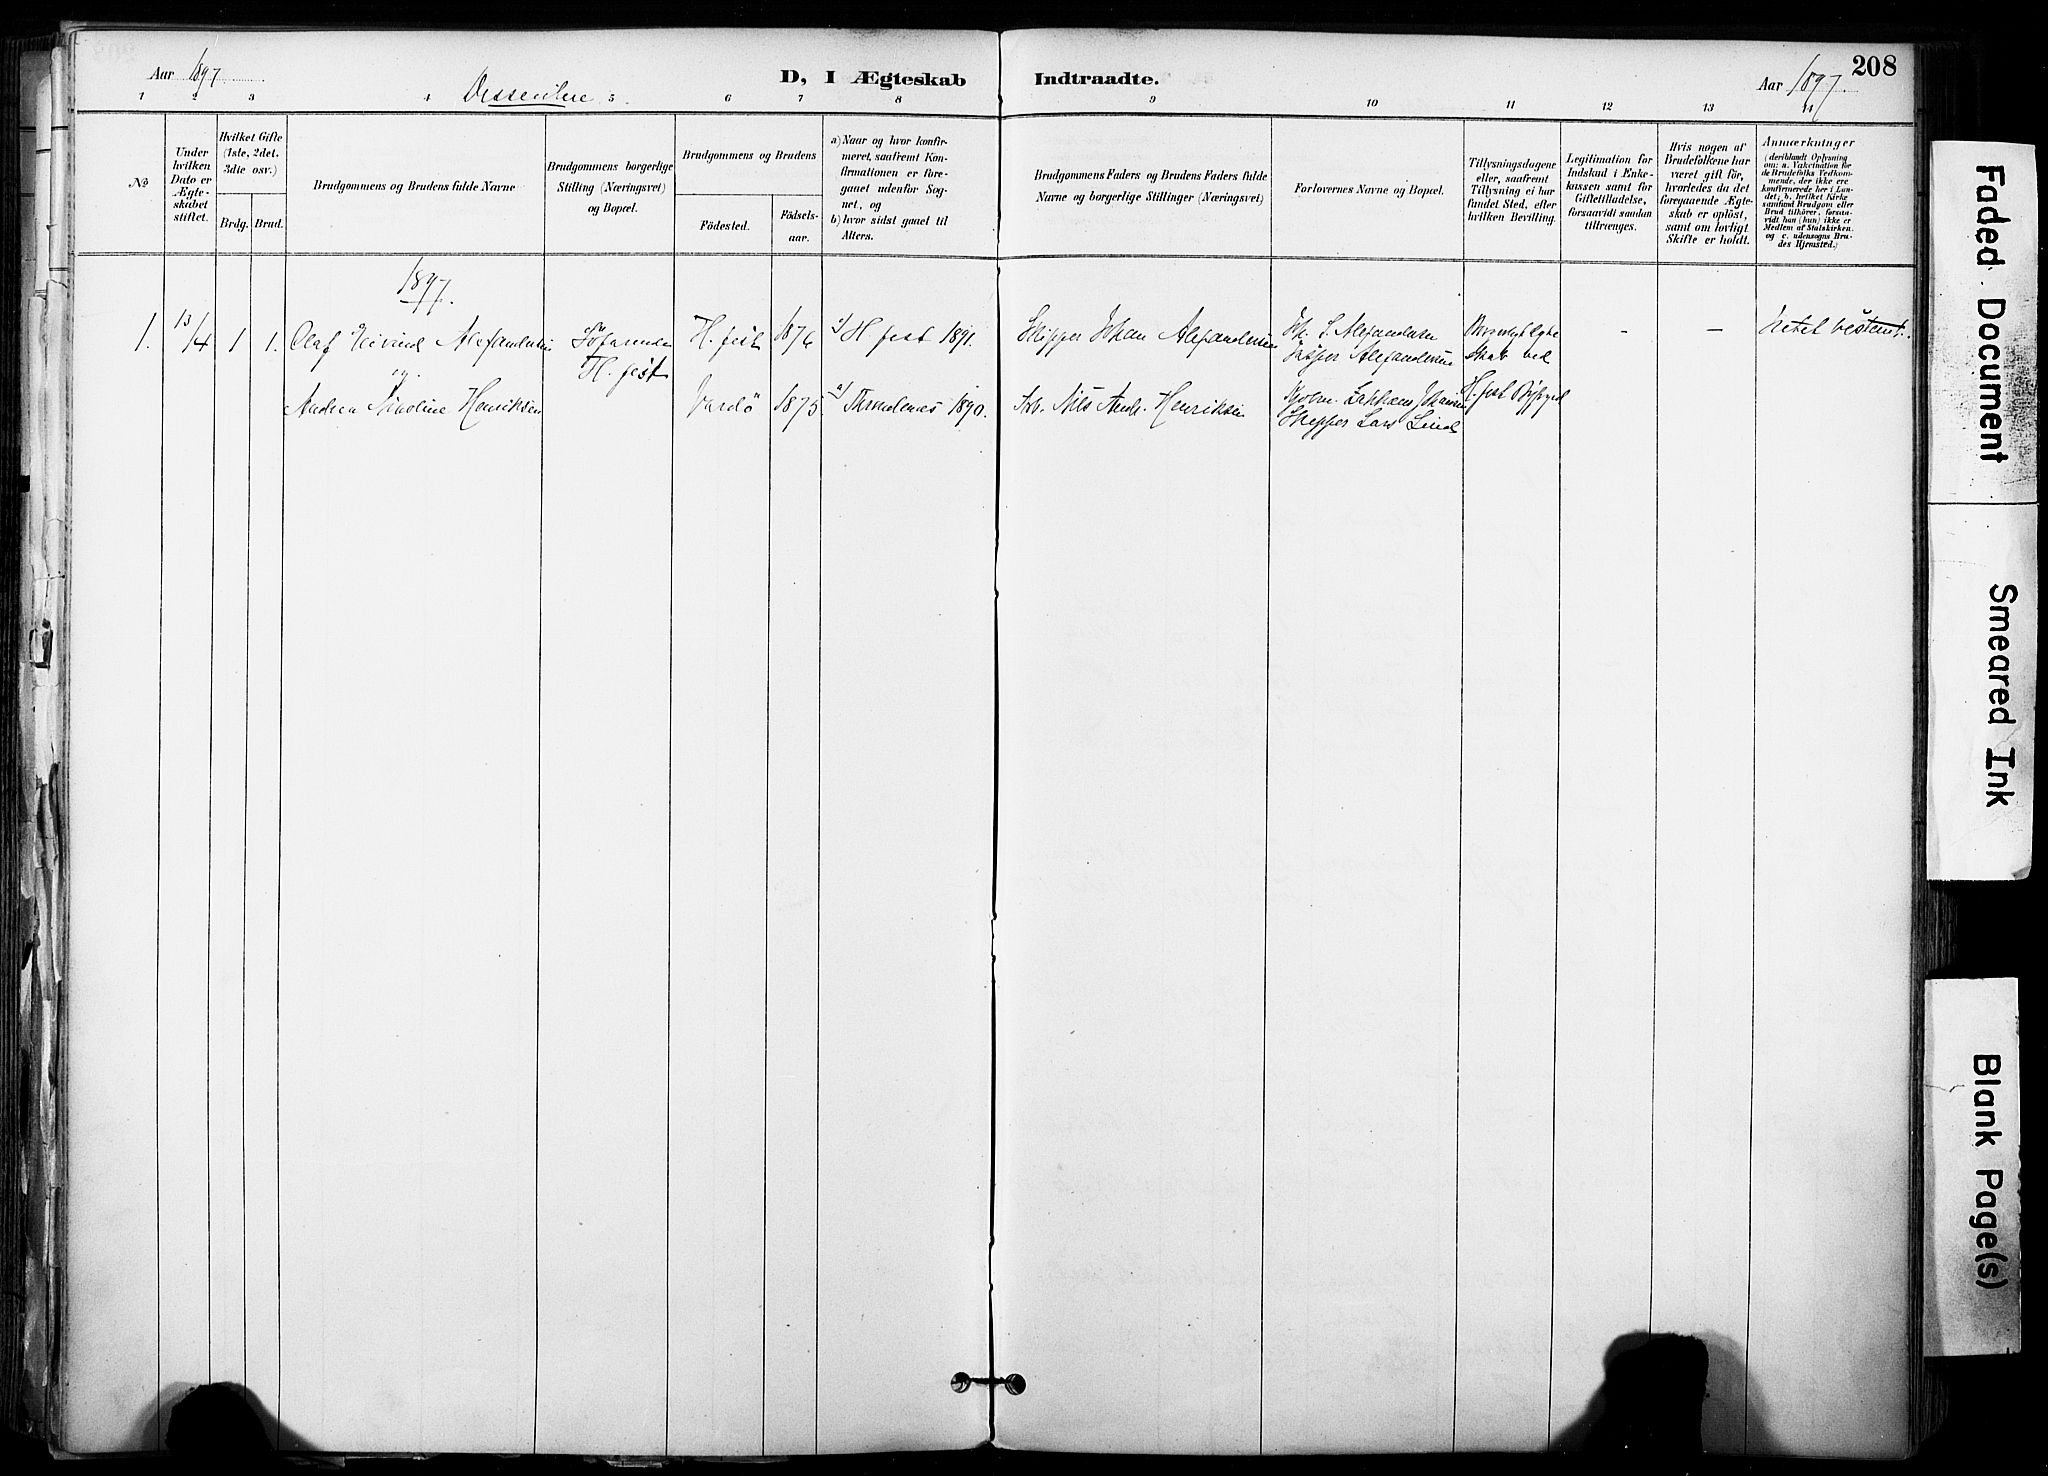 Aar 1897
Dissentere
D, I Ægteskab
Indtraadte.
Aar 1897.
208
1 2 3 4 5 6 7 8 9 10 11 12 13 14
No
Under hvilken Dato er Ægteskabet stiftet.
Hvilket Gifte (1ste, 2det, 3dte osv.)
Brdg. Brud.
Brudgommens og Brudens fulde Navne
Brudgommens borgerlige Stilling (Næringsvei) og Bopæl.
Brudgommens og Brudens
Födested.
Födselsaar.
a) Naar og hvor konfirmeret, saafremt Konfirmationen er foregaaet udenfor Sognet, og
b) hvor sidst gaaet til Alters.
Brudgommens Faders og Brudens Faders fulde Navne og borgerlige Stillinger (Næringsvei)
Forlovernes Navne og Bopæl.
Tillysningsdagene eller, saafremt Tillysning ei har fundet Sted, efter hvilken Bevilling.
Legitimation for Indskud i Enkekassen samt for Giftetilladelse, forsaavidt saadan tiltrænges.
Hvis nogen af Brudefolkene har været gift för, hvorledes da det foregaaende Ægteskab er oplöst, samt om lovligt Skifte er holdt.
Anmærkninger
(deriblandt Oplysning om: a. Vakcination for de Brudefolks Vedkommende, der ikke ere konfirmerede her i Landet; b. hvilket Kirkesamfund Brudgom eller Brud tilhörer, forsaavidt han (hun) ikke er Medlem af Statskirken, og c. udensogns Brudes Hjemsted.)
1897.
1. 13/4 1 1. Olaf Eivind Alexandersen H. fest 1876 a) H. fest 1891. Skipper Johan Alexandersen Joh. S. Alexandersen Borgerligt Ægte - - Intet bestemt.
og H. fest Jasper Alexandersen skab ved
Andrea Henriksen Vardö 1875 a) Throndenes 1890. Arb. Nils Andr. Henriksen Johansen H. fest Byfogd
Skipper Lars Lind
Faded Document
Smeared Ink
Blank Page(s)